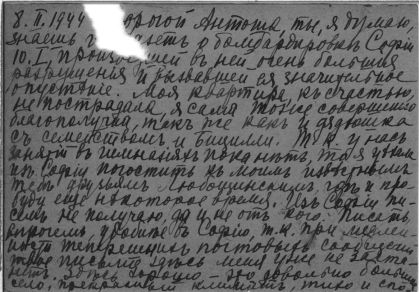 8. II. 1944 Дорогой Антоша ты, я думаю,
знаешь газетъ о бомбардировкѣ Софіи
10. I, произведшей въ ней очень большія
разрушенія и вызвавшей ея значительное
опустѣніе. Моя квартира къ счастью,
не пострадала, я сама тоже совершенно
благополучна, такъ же какъ и дядюшка
съ семействомъ и Бицилли. Т.к. у насъ
занятій въ гимназіяхъ пока нѣтъ, то я уѣхала
изъ Софіи погостить къ моимъ извѣстнымъ
тебѣ друзьямъ Любощинскимъ, гдѣ и про-
буду еще некоторое время. Изъ Софіи пи-
семъ не получаю, да и не отъ кого. Писать
впрочемъ удобнѣе въ Софію, т.к. при медлен-
ности теперешнихъ почтовыхъ сообщеній
твое письмо здѣсь меня уже не заста-
нетъ. Здѣсь хорошо – это довольно большое
село, прекрасный климатъ, тихо и спо-